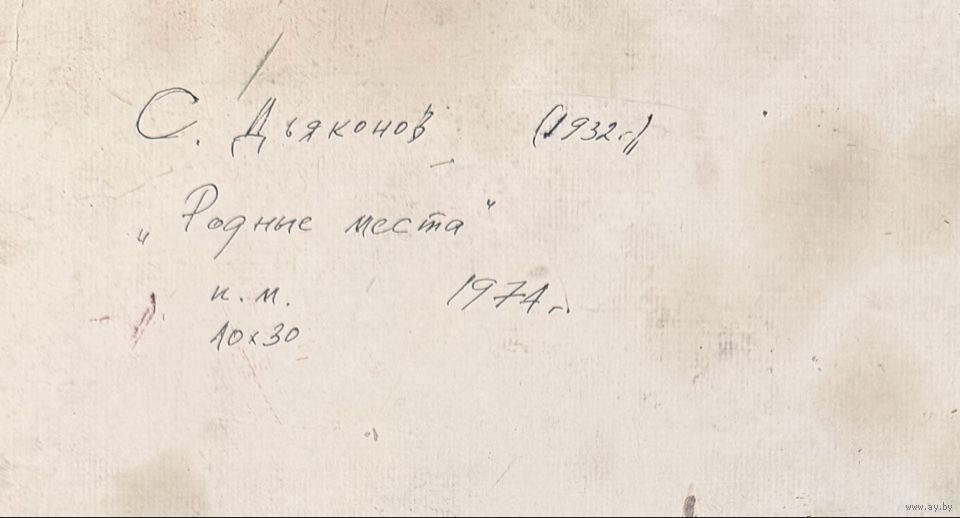 С. Дьяконов (1932г.)
„Родные места"
к.м. 1974г.
10х30
www.ay.by